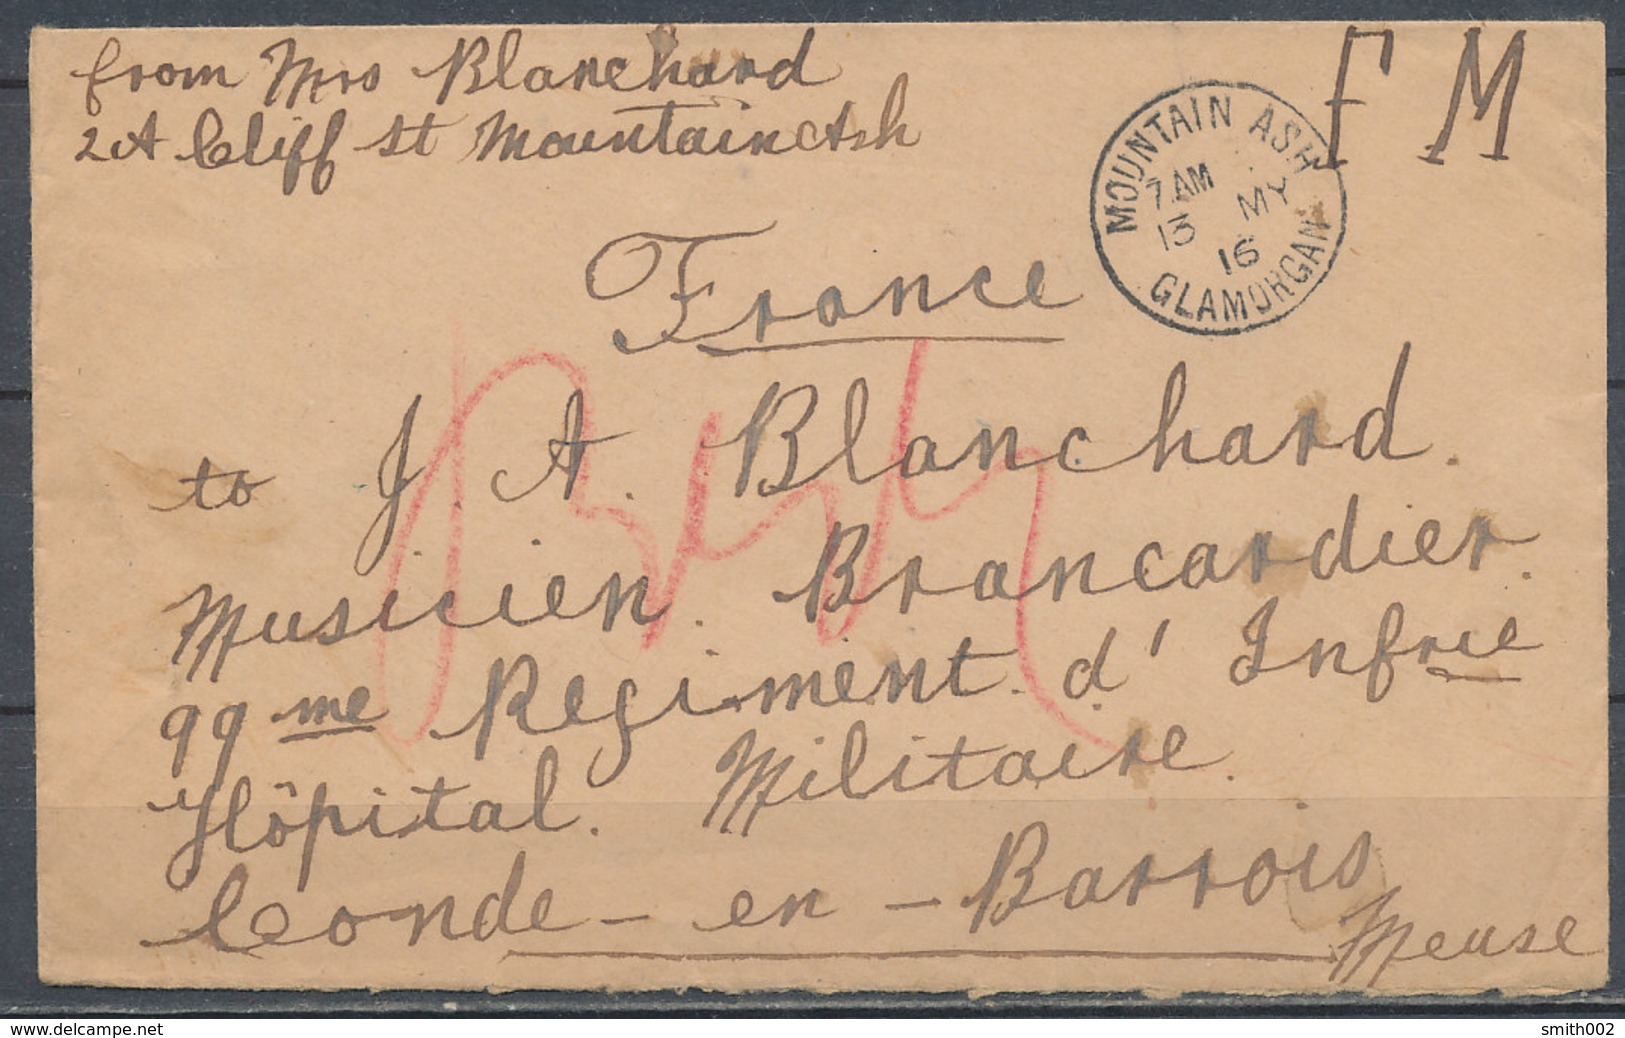 from Mrs Blanchard
2A Cliff St Mountain Ash
F M
MOUNTAIN ASH
7 AM
13 MY
16
GLAMORGAN
France
to J. A. Blanchard.
Musicien. Brancardier.
99me Regiment. d' Infrie
Hôpital. Militaire.
Conde - en - Barrois
Meuse
delcampe.net
smith002